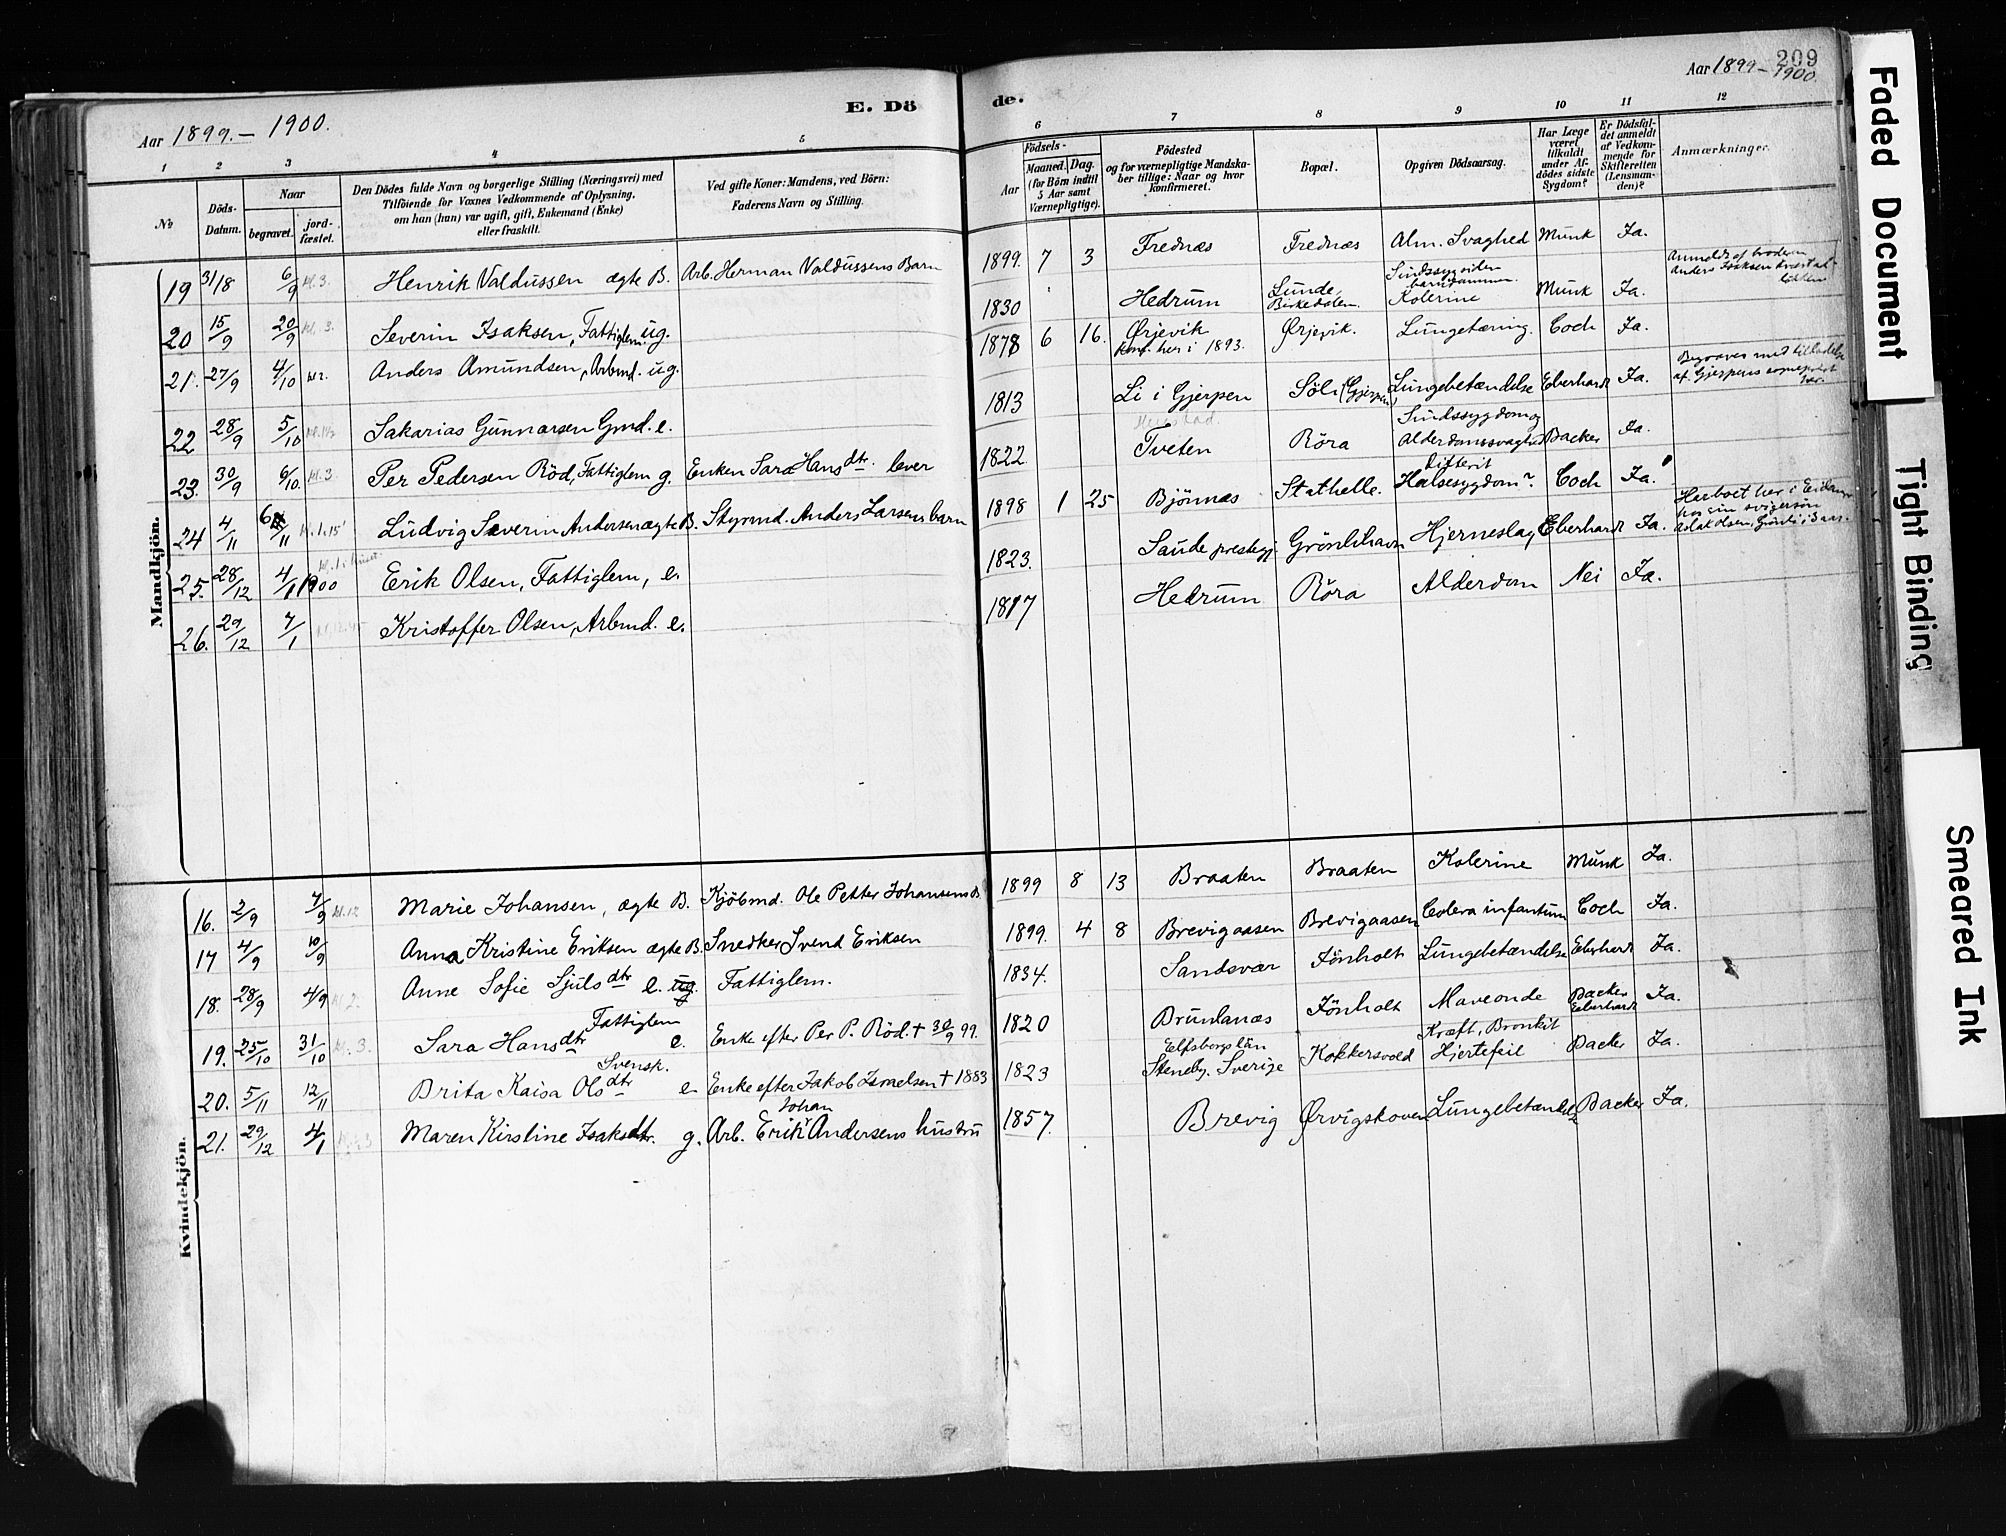 209
Aar 1899.- 1900.
E. Dö
de.
Aar 1899-1900.
1 2 3 4 5
6 7 8 9 10 11 12
No
Döds-Datum.
Naar
begravet.
jord-fæstet.
Den Dödes fulde Navn og borgerlige Stilling (Næringsvei) med
Tilföiende for Voxnes Vedkommende af Oplysning,
om han (hun) var ugift, gift, Enkemand (Enke)
eller fraskilt.
Ved gifte Koner: Mandens, ved Börn:
Faderens Navn og Stilling.
Födsels-
Aar
Maaned. Dag.
(for Börn indtil
5 Aar samt
Værnepligtige).
Födested
og for værnepligtige Mandska-
ber tillige: Naar og hvor
konfirmeret.
Bopæl.
Opgiven Dödsaarsag.
Har Læge
været
tilkaldt
under Af-
dödes sidste
Sygdom?
Er Dödsfal-
det anmeldt
af Vedkom-
mende for
Skifteretten
(Lensman-
den)?
Anmærkninger.
Mandkjön.
19 31/8 6/9 kl.3. Henrik Valdussen ægte B. Arb. Herman Valdussens Barn 1899. 7 3 Frednæs Frednæs Alm. Svaghed Munk Ja.
20 15/9 20/9 kl. 3. Severin Isaksen, Fattiglem ug. 1830 Hedrum Lunde, Birkedalen. Sindssyg siden barndommen. Kolerine Munk Ja. Anmeldt af broderen Anders Isaksen
21. 27/9 4/10 Anders Amundsen, Arbmd. ug. 1878 6 16. Ørjevik Konf. her i 1893. Ørjevik. Lungetæring. Coch Ja.
22 28/9 5/10 Sakarias Gunnarsen Gmd. e. 1813 Li i Gjerpen Söli (Gjerpen) Lungebetændelse Eberhardt Ja. Begraves med tilladelse af Gjerpens sogneprest her.
23. 30/9 6/10. kl.3 Per Pedersen Röd, Fattiglem g. Enken Sara Hansdtr. lever 1822 Tveten Röra Sindssygdom og Alderdomssvaghed Backer Ja.
24 4/11 6/11 kl.1.15 Ludvig Severin Andersen ægte B. Styrmd. Anders Larsens barn 1898 1 25 Bjönnes Stathelle. Difterit Halsesygdom? Coch Ja. Har boet her i Eidanger hos sin svigersön Aslak Olsen,
25. 28/12 4/1 1900 Erik Olsen, Fattiglem, e. 1823. Saude prestegj. Grönlihavn Hjerneslag Eberhardt Ja.
26. 29/12 7/1 Kristoffer Olsen, Arbmd. e. 1817 Hedrum Röra Alderdom Nei Ja.
Kvindekjön.
16. 2/9 7/9 kl.12 Marie Johansen, ægte B. Kjöbmd. Ole Petter Johansens B. 1899 8 13 Braaten Braaten Kolerine Munk Ja.
17 4/9 10/9 Anna Kristine Eriksen ægte B. Snedker Svend Eriksen 1899. 4 8 Brevigaasen Brevigaasen Colera infantum Coch Ja.
18. 28/9 4/9 kl.2. Anne Sofie Sjulsdtr e. ug. Fattiglem. 1834. Sandsvær Tönholt Lungebetændelse Eberhardt Ja.
19. 25/10 31/10 kl.3. Sara Hansdtr Fattiglem e. Enke efter Per P. Röd. + 30/9 99. 1820 Brunlanæs Tönholt Maveonde Backer Eberhardt Ja.
20. 5/11 12/11 Brita Kaisa Olsdtr Svensk. e Enke efter Jakob Israelsen + 1883 1823 Elfsborgs län Steneby. Sverige Kokkersvold Kræft, Bronkit Hjertefeil Backer Ja.
21. 29/12 4/1 Maren Kirstine Isaksdtr. g. Arb. Erik Johan Andersens hustru 1857. Brevig Ørvigskoven Lungebetændelse Backer Ja.
Faded Document
Tight Binding
Smeared Ink